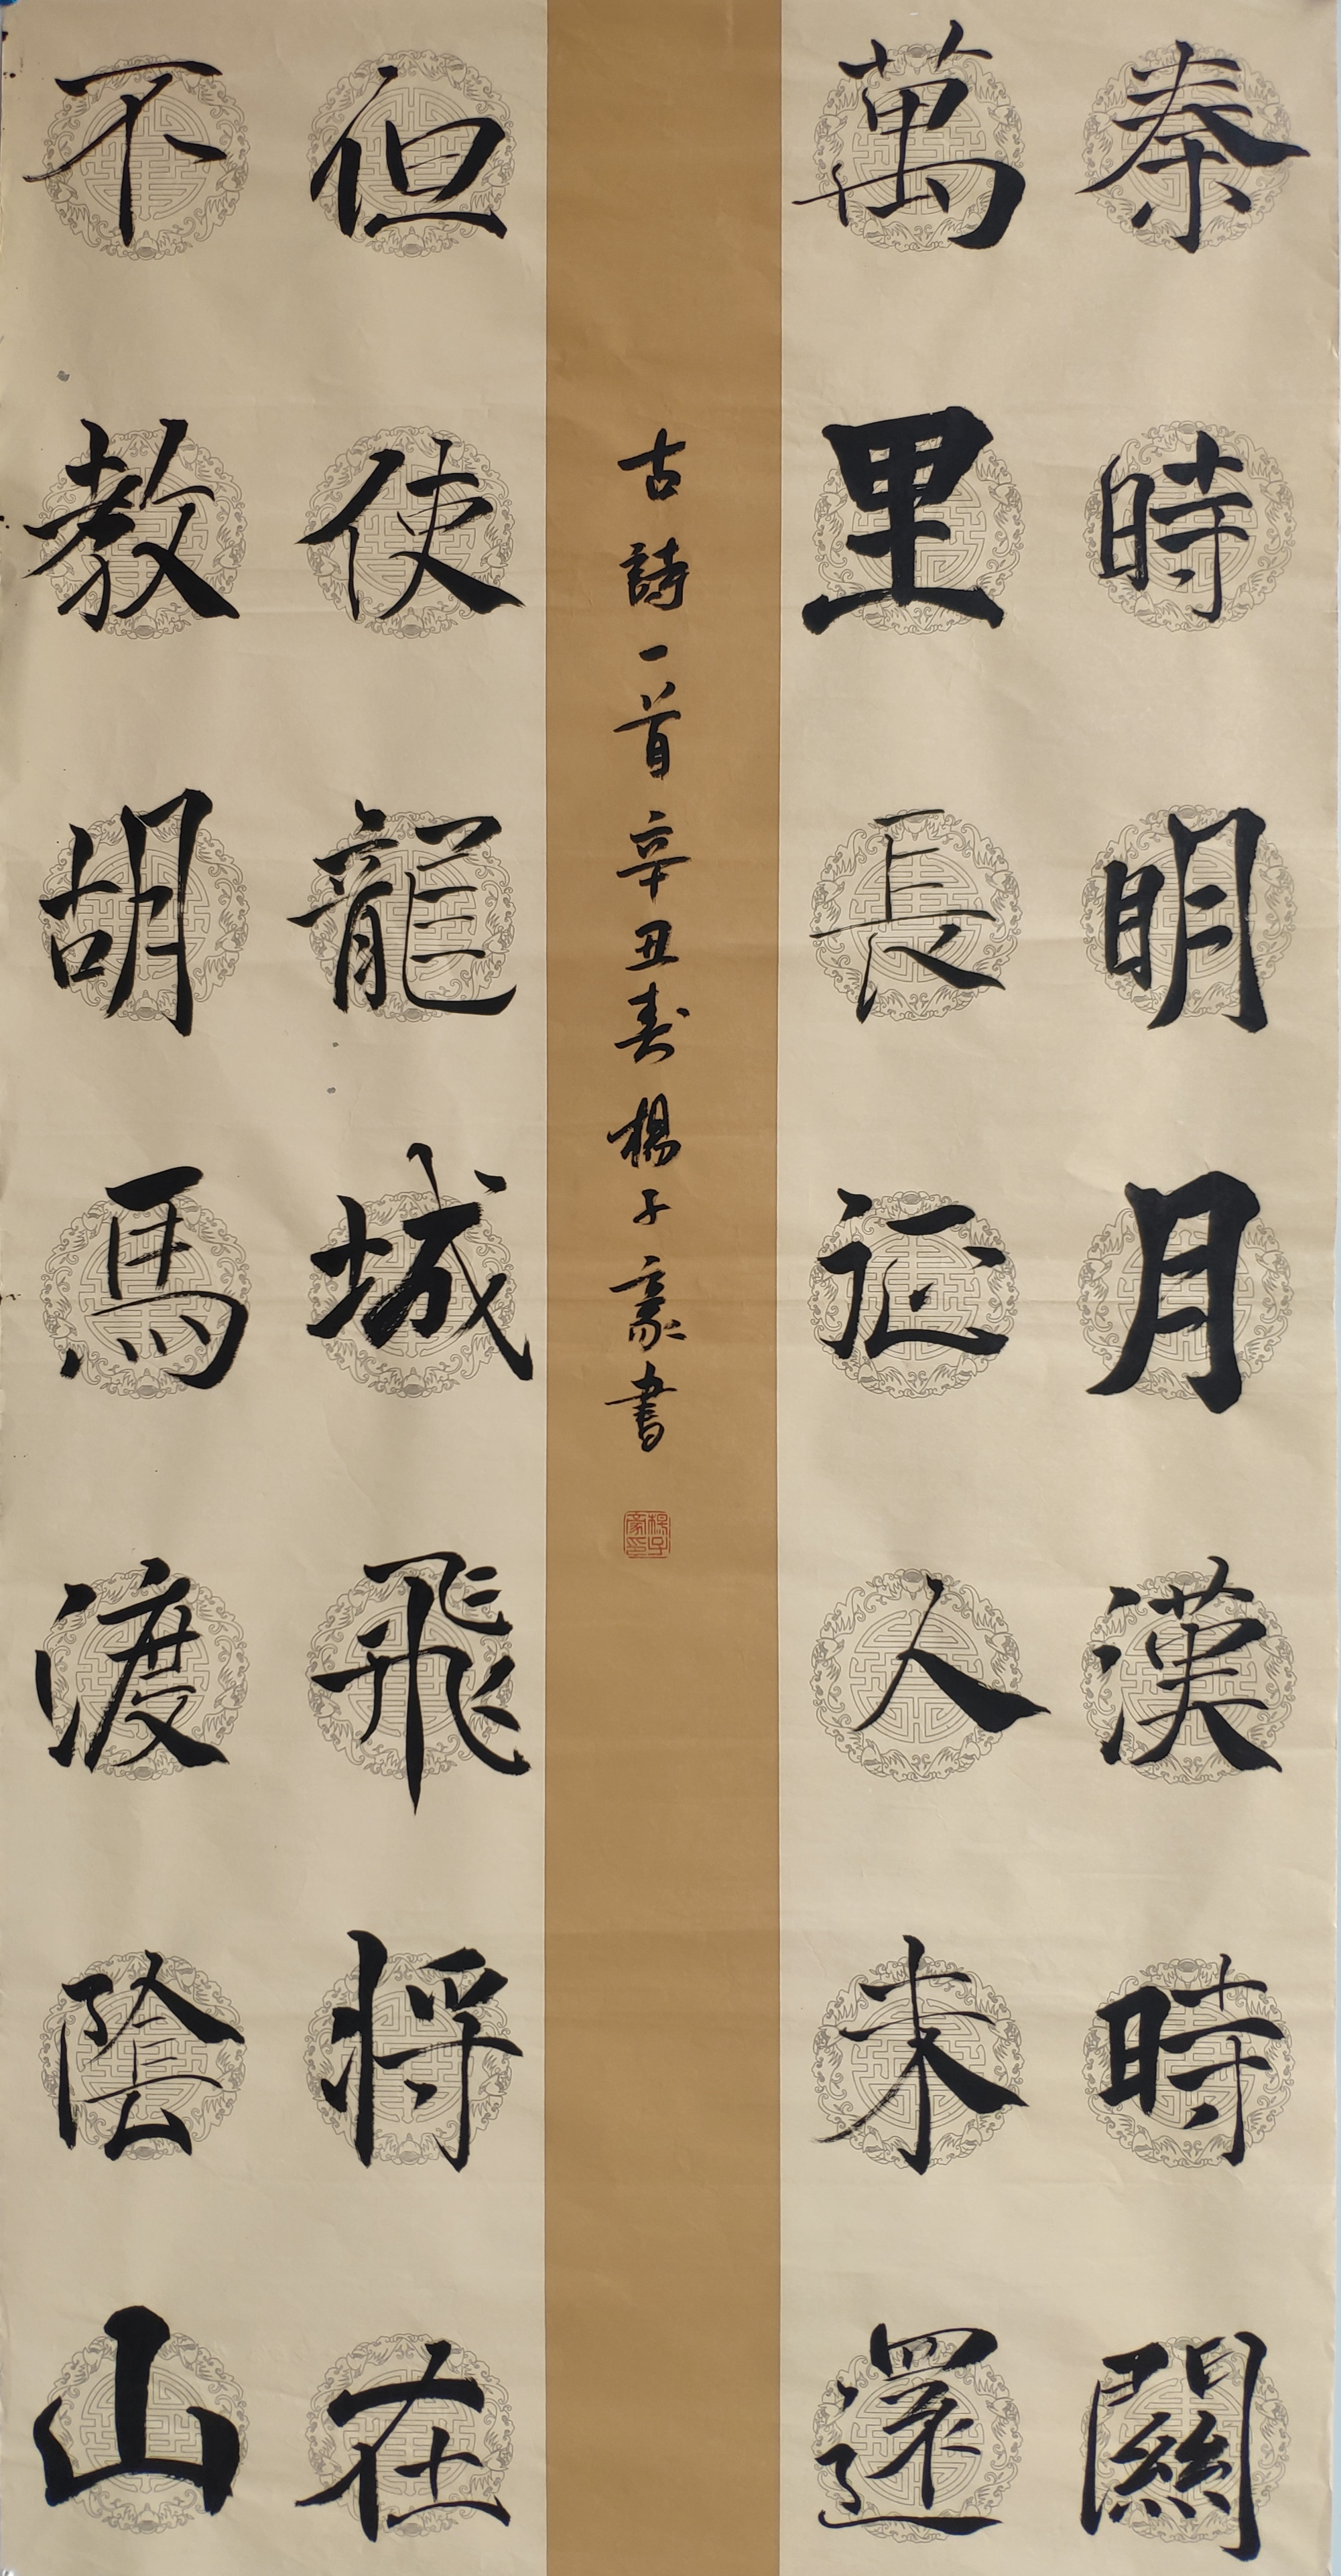 秦時明月漢時關
萬里長征人未還
但使龍城飛將在
不教胡馬渡陰山
古詩一首辛丑春楊子豪書
楊子豪印